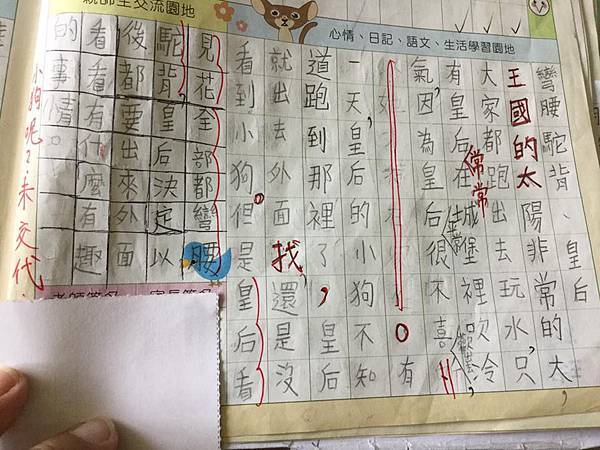 親師生交流園地
心情、日記、語文、生活學習園地
彎腰駝背、皇后
王國的太陽非常的大,
大家都跑出去玩水,只
有皇后在城堡裡吹冷
常常
氣,因為皇后很不喜
。有
一天,皇后的小狗不知
道跑到那裡了,皇后
就出去外面找,還是沒
看到小狗。但是皇后看
見花全部都彎腰
駝背,皇后決定以
後都要出來外面
看看有什麼有趣
的事情。
小狗呢?未交代